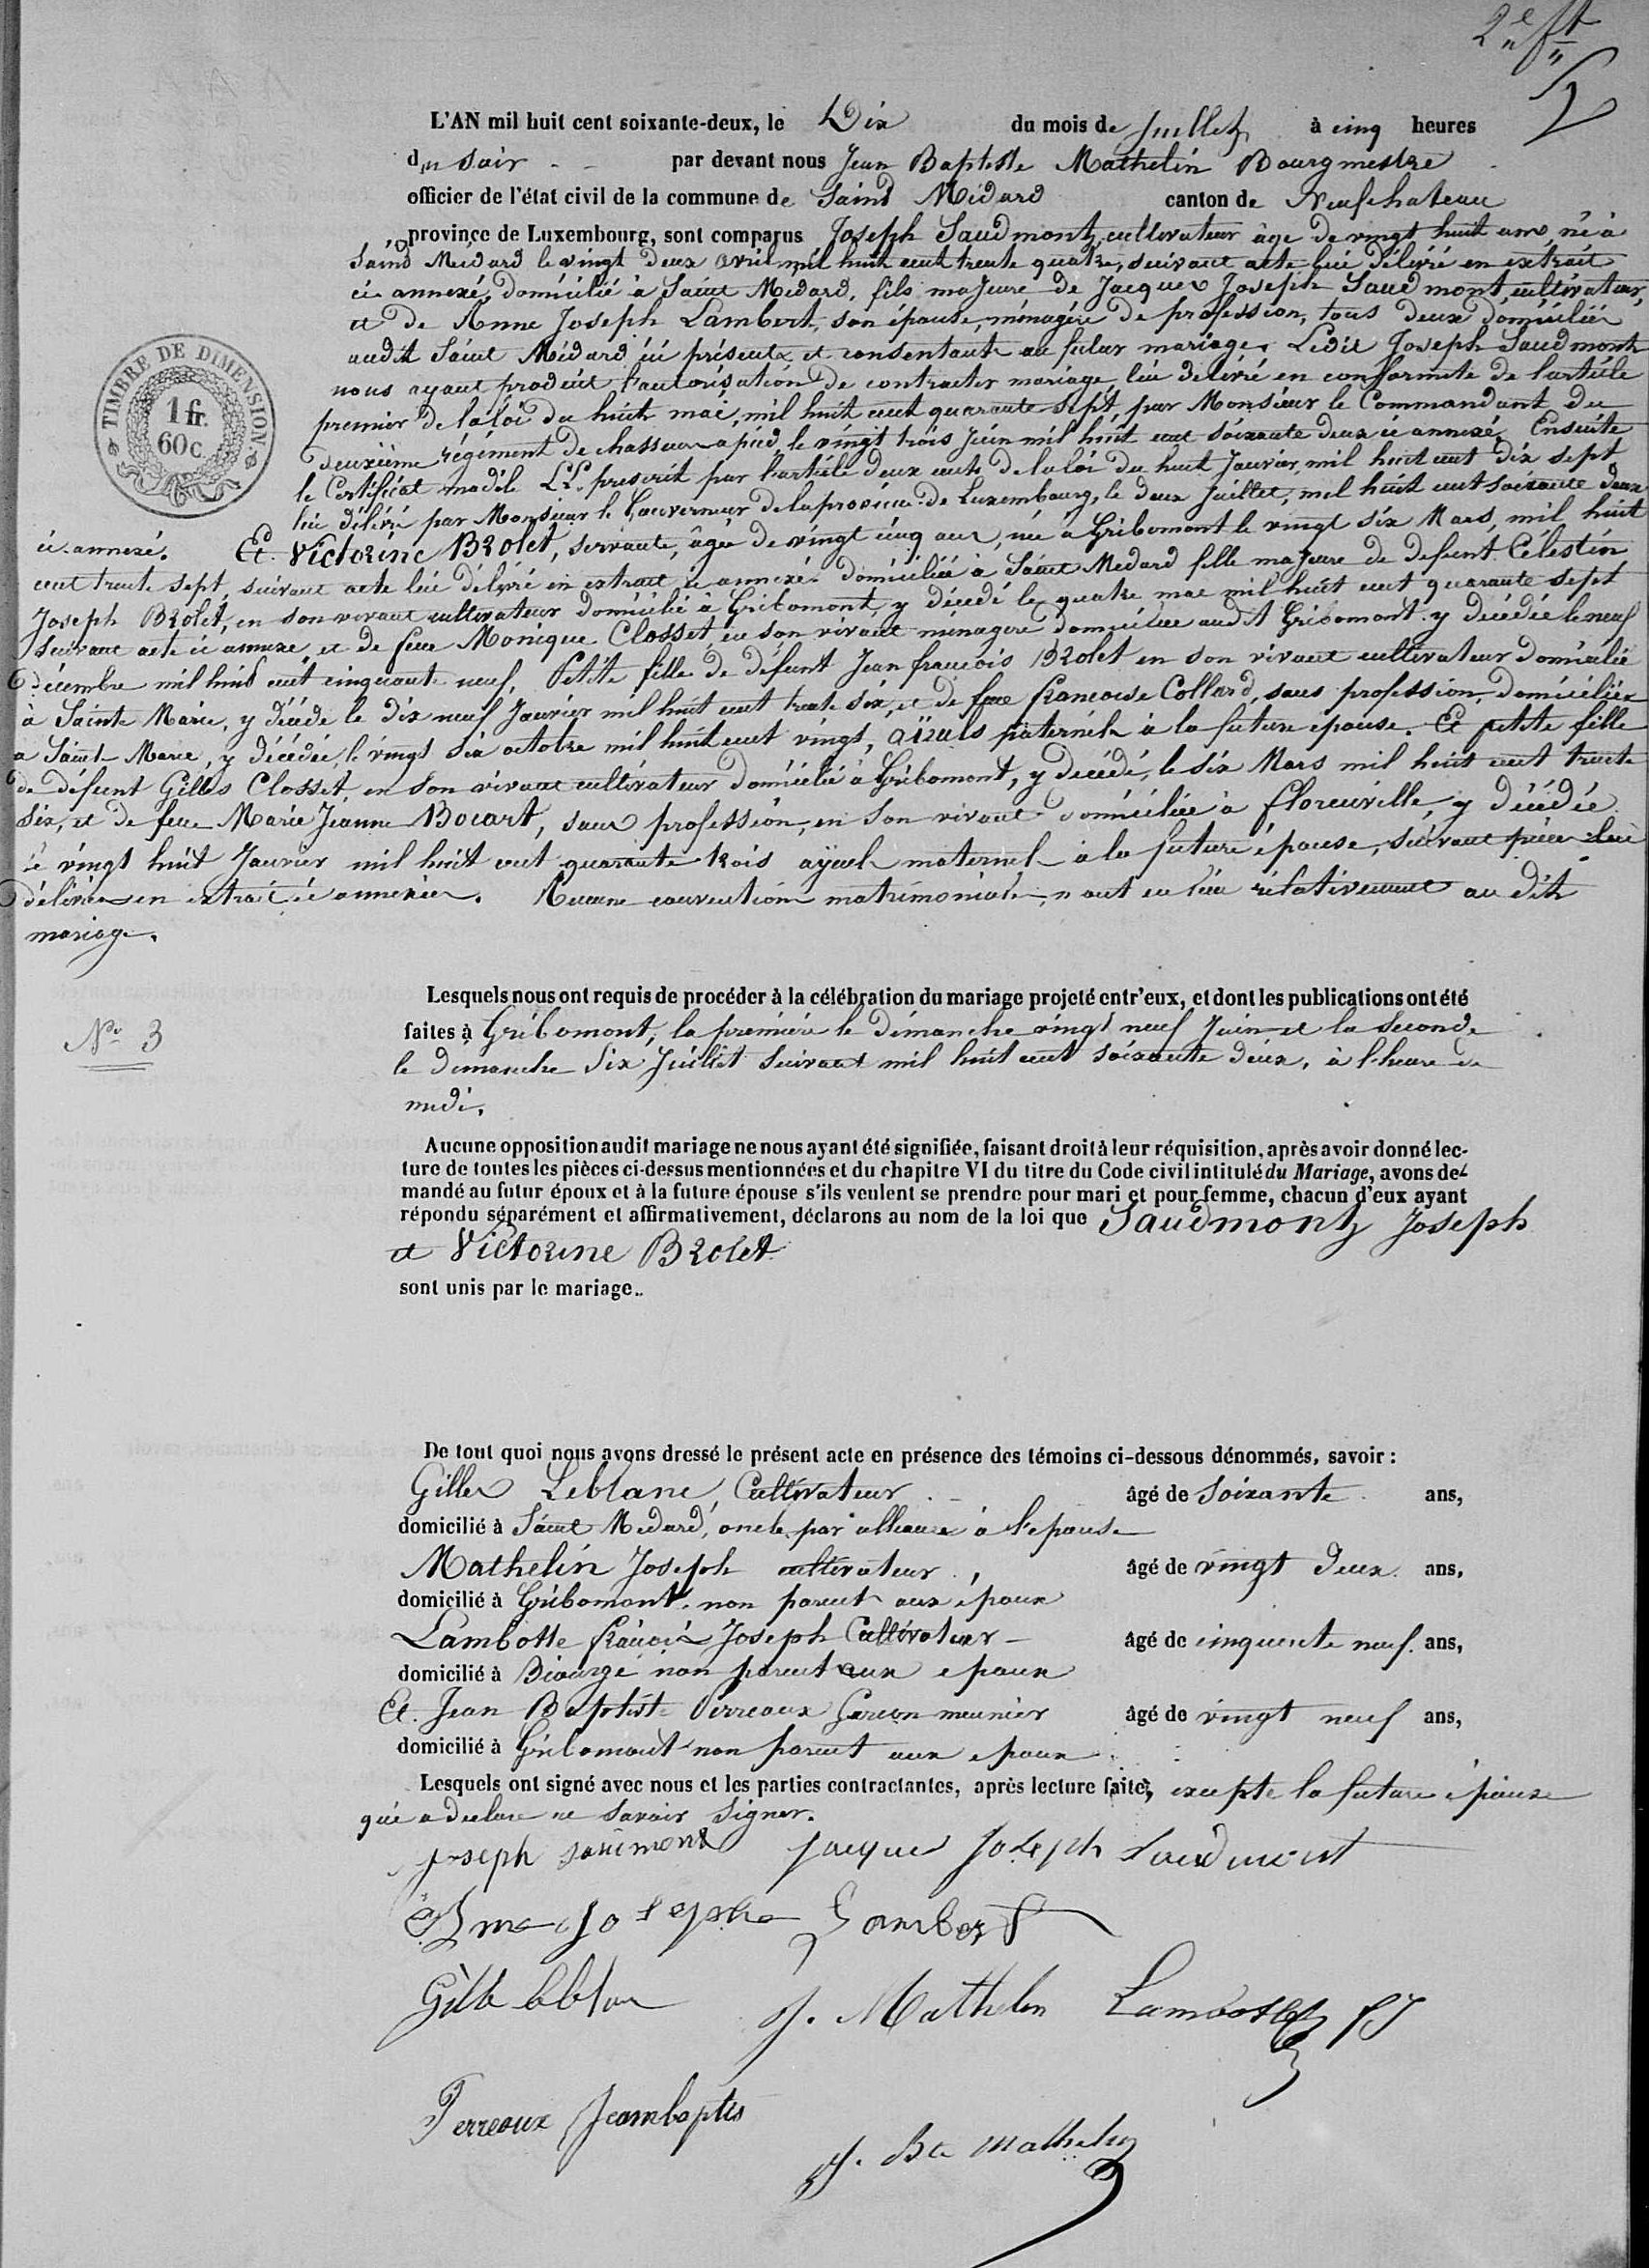 2e ft
L'AN mil huit cent soixante-deux, le Dix du mois de Juillet à cinq heures
du soir par devant nous Jean Baptiste Mathelin Bourgmestre
officier de l'état civil de la commune de Saint Médard canton de Neufchateau
province de Luxembourg, sont comparus Joseph Saudmont, cultivateur âgé de vingt huit ans, né à
Saint Médard le vingt deux avril mil huit cent trente quatre, suivant acte lui délivré en extrait
ci annexé, domicilié à Saint Médard, fils majeure de Jacques Joseph Saudmont, cultivateur,
et de Anne Joseph Lambert, son épouse, ménagère de profession, tous deux domiciliés
audit Saint Médard ici présents et consentants au futur mariage. Ledit Joseph Saudmont
nous ayant produit l'autorisation de contracter mariage, lui délivré en conformité de l'article
premier de la loi du huit mai, mil huit cent quarante sept, par Monsieur le Commandant du
deuxième régiment de chasseurs a pied, le vingt trois Juin mil huit cent soixante deux ci annexé, Ensuite
le Certificat modèle LL. prescrit par l'article deux cents de la loi du huit Janvier, mil huit cent dix sept
lui délivré par Monsieur le Gouverneur de la province de Luxembourg, le deux Juillet, mil huit cent soixante deux
TIMBRE DE DIMENSION
1 fr.
60c
ci-annexé. Et. Victorine Brolet, servante, âgée de vingt cinq ans, née à Gribomont le vingt six Mars, mil huit
cent trente sept, suivant acte lui délivré en extrait ci annexé. domiciliée à Saint Medard fille majeure de defunt Célestin
Joseph Brolet, en son vivant cultivateur domicilié à Gribomont, y décédé le quatre mai mil huit cent quarante sept
suivant acte ci annexé, et de feue Monique Closset en son vivant ménagère domiciliée audit Gribomont. y décédée le neuf
décembre mil huit cent cinquante neuf. Petite fille de défunt Jean françois Brolet en son vivant cultivateur domicilié
à Sainte Marie, y décédé le dix neuf Janvier mil huit cent trente six, et de feue françoise Collard, sans profession, domiciliée
à Saint-Marie, y décédée, le vingt six octobre mil huit cent vingt, aïeuls paternels à la future épouse. Et petite fille
de défunt Gilles Closset, en son vivant cultivateur domicilié à Gribomont, y décédé, le six Mars mil huit cent trente
six, et de feue Marie Jeanne Bocart, sans profession, en son vivant domiciliée à florenville, y décédée
le vingt huit Janvier mil huit cent quarante trois ayeuls maternels à la future épouse, suivant pièces lui
délivrées en extrait ci annexées. Aucune convention matrimoniale, n'ont eu lieu relativement au dit
mariage.
Lesquels nous ont requis de procéder à la célébration du mariage projeté entr'eux, et dont les publications ont été
faites à Gribomont, la première le dimanche vingt neuf Juin et la seconde
N° 3
le dimanche six Juillet suivant mil huit cent soixante deux, à l'heure de
midi.
Aucune opposition audit mariage ne nous ayant été signifiée, faisant droit à leur réquisition, après avoir donné lec-
ture de toutes les pièces ci-dessus mentionnées et du chapitre VI du titre du Code civil intitulé du Mariage, avons de-
mandé au futur époux et à la future épouse s'ils veulent se prendre pour mari et pour femme, chacun d'eux ayant
répondu séparément et affirmativement, déclarons au nom de la loi que Saudmont Joseph
et Victorine Brolet
sont unis par le mariage..
De tout quoi nous avons dressé le présent acte en présence des témoins ci-dessous dénommés, savoir :
Gilles Leblanc, Cultivateur âgé de soixante ans,
domicilié à Saint Medard, oncle par alliance à l'epouse
Mathelin Joseph cultivateur, âgé de vingt deux ans,
domicilié à Gribomont, non parent aux époux
Lambotte françois Joseph Cultivateur âgé de cinquante neuf. ans,
domicilié à Biourge non parent aux epoux
Et. Jean Baptiste Perreaux Garcon meunier âgé de vingt neuf ans,
domicilié à Gribomont non parent aux epoux
Lesquels ont signé avec nous et les parties contractantes, après lecture faite, excepte la future épouse
qui a declare ne savoir signer.
joseph saudmont jacques Joseph Saudmont
Anne josephe Lambert
Gille leblan J. Mathelin Lambotte fJ
Perreaux Jeambaptis
J. Bte Mathelin